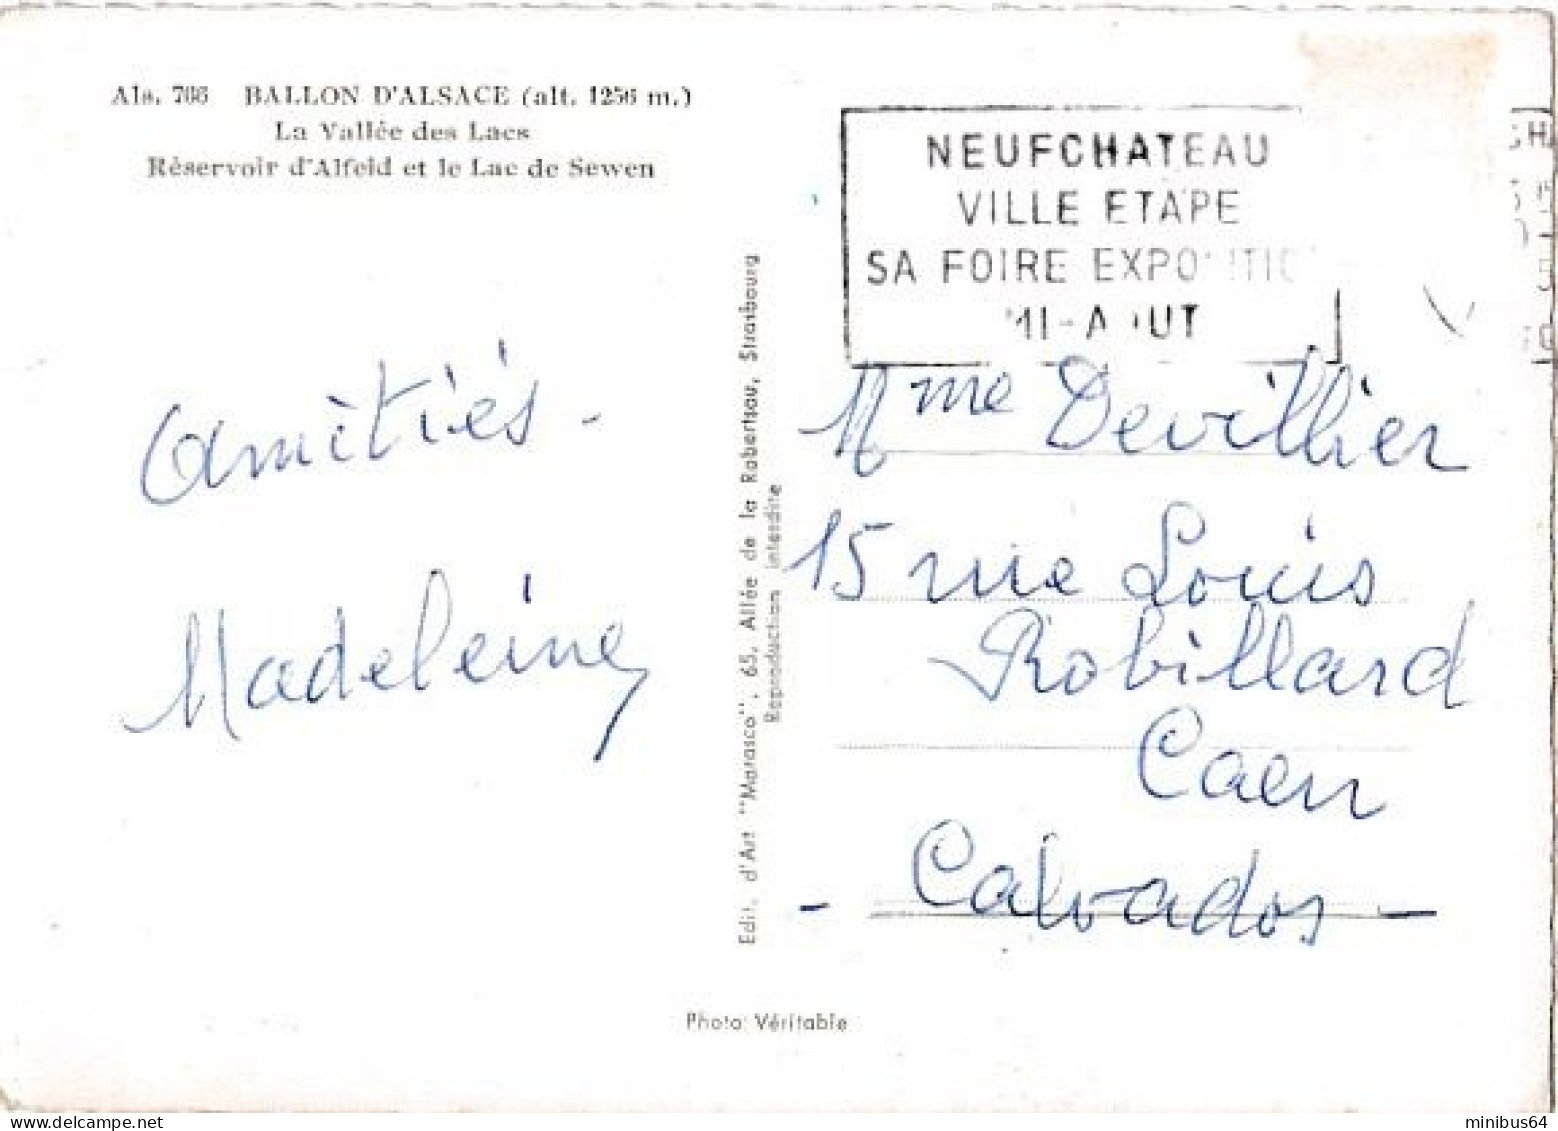 Als. 766 BALLON D'ALSACE (alt. 1256 m.)
La Vallée des Lacs
Réservoir d'Alfeld et le Lac de Sewen
NEUFCHATEAU
VILLE ETAPE
SA FOIRE EXPOSITION
MI-AOUT
Amitiés -
Madeleine
Edit. d'Art "Marasco", 65, Allée de la Robertsau, Strasbourg
Reproduction interdite
Mme Devillier
15 rue Louis
Robillard
Caen
- Calvados -
Photo Véritable
delcampe.net
minibus64